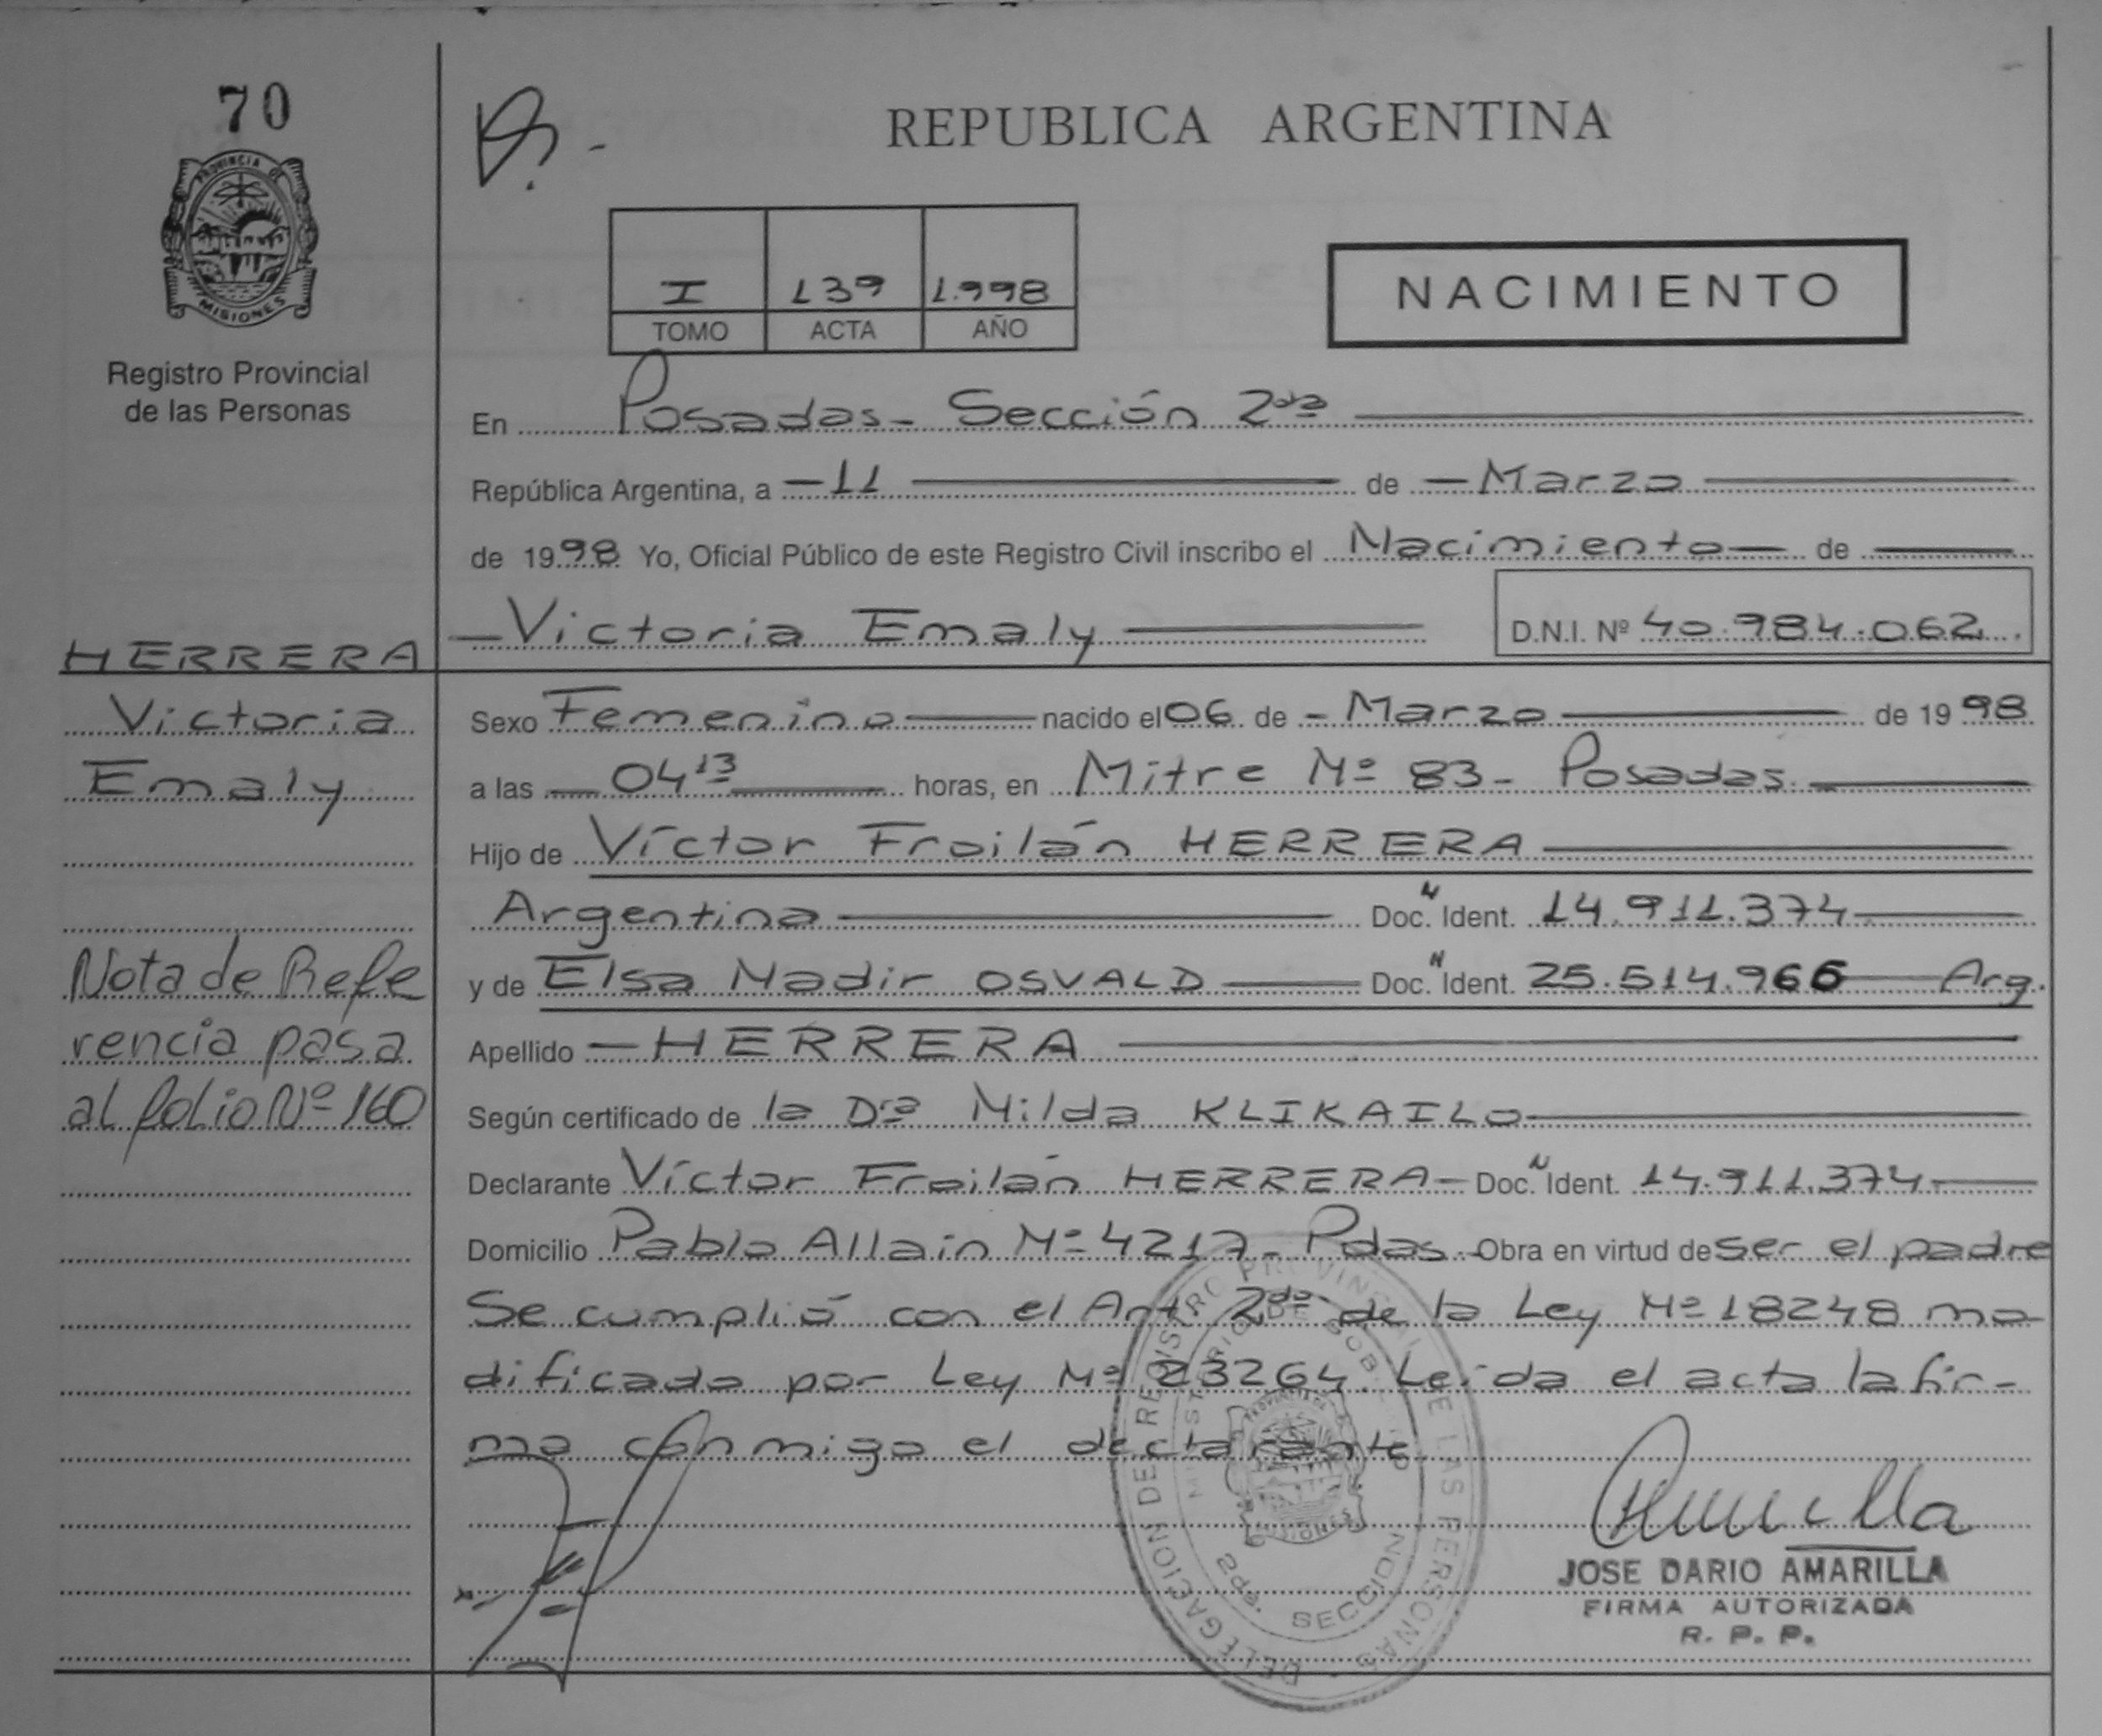 70
PROVINCIA DE
MISIONES
Registro Provincial
de las Personas
HERRERA
Victoria
Emaly
Nota de Refe
rencia pasa
al folio Nº 160
REPUBLICA ARGENTINA
I 139 1.998
TOMO ACTA AÑO
NACIMIENTO
En Posadas - Sección 2da
República Argentina, a - 11 de - Marzo
de 1998 Yo, Oficial Público de este Registro Civil inscribo el Nacimiento de
Victoria Emaly D.N.I. Nº 40.984.062.
Sexo Femenino nacido el 06 de - Marzo de 1998
a las 04 13 horas, en Mitre Nº 83 - Posadas.
Hijo de Víctor Froilán HERRERA
Argentina Doc. N Ident. 14.911.374
y de Elsa Nadir OSVALD Doc. N Ident. 25.514.966 Arg.
Apellido - HERRERA
Según certificado de la Dra Nilda KLIKAILO
Declarante Víctor Froilán HERRERA - Doc. N Ident. 14.911.374
Domicilio Pablo Allain Nº 4217 - Pdas. Obra en virtud de ser el padre
Se cumplió con el Art. 2do de la Ley Nº 18248 mo
dificado por Ley Nº 23264. Leída el acta la fir-
ma conmigo el declarante
DELEGACION DE REGISTRO PROVINCIAL DE LAS PERSONAS
MINISTERIO DE GOBIERNO
PROVINCIA DE
MISIONES
2da. SECCION
Amarilla
JOSE DARIO AMARILLA
FIRMA AUTORIZADA
R. P. P.